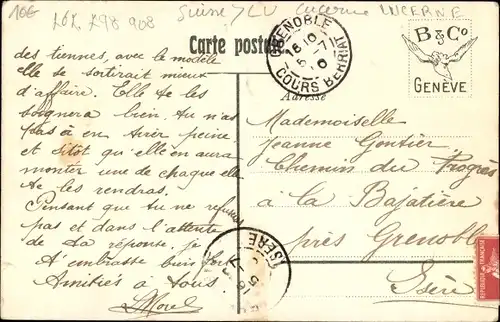 10€
LOK 298 908
Suisse / LU Lucerne LUCERNE
Carte postale
GRENOBLE
COURS BERRIAT
B & Co
GENÈVE
Adresse
des tiennes, avec le modèle
elle se sortirait mieux
d'affaire. Elle te les
soignera bien, tu n'as
pas à en avoir peine
et sitôt qu'elle en aura
monter une de chaque elle
te les rendras.
Pensant que tu ne refuseras
pas et dans l'attente
de ta réponse, je
t'embrasse bien fort
Amitiés à tous
L. Morel
Mademoiselle
Jeanne Gontier
Chemin du Progrès
à la Bajatière
près Grenoble
Isère
ISÈRE
REPUBLIQUE FRANÇAISE